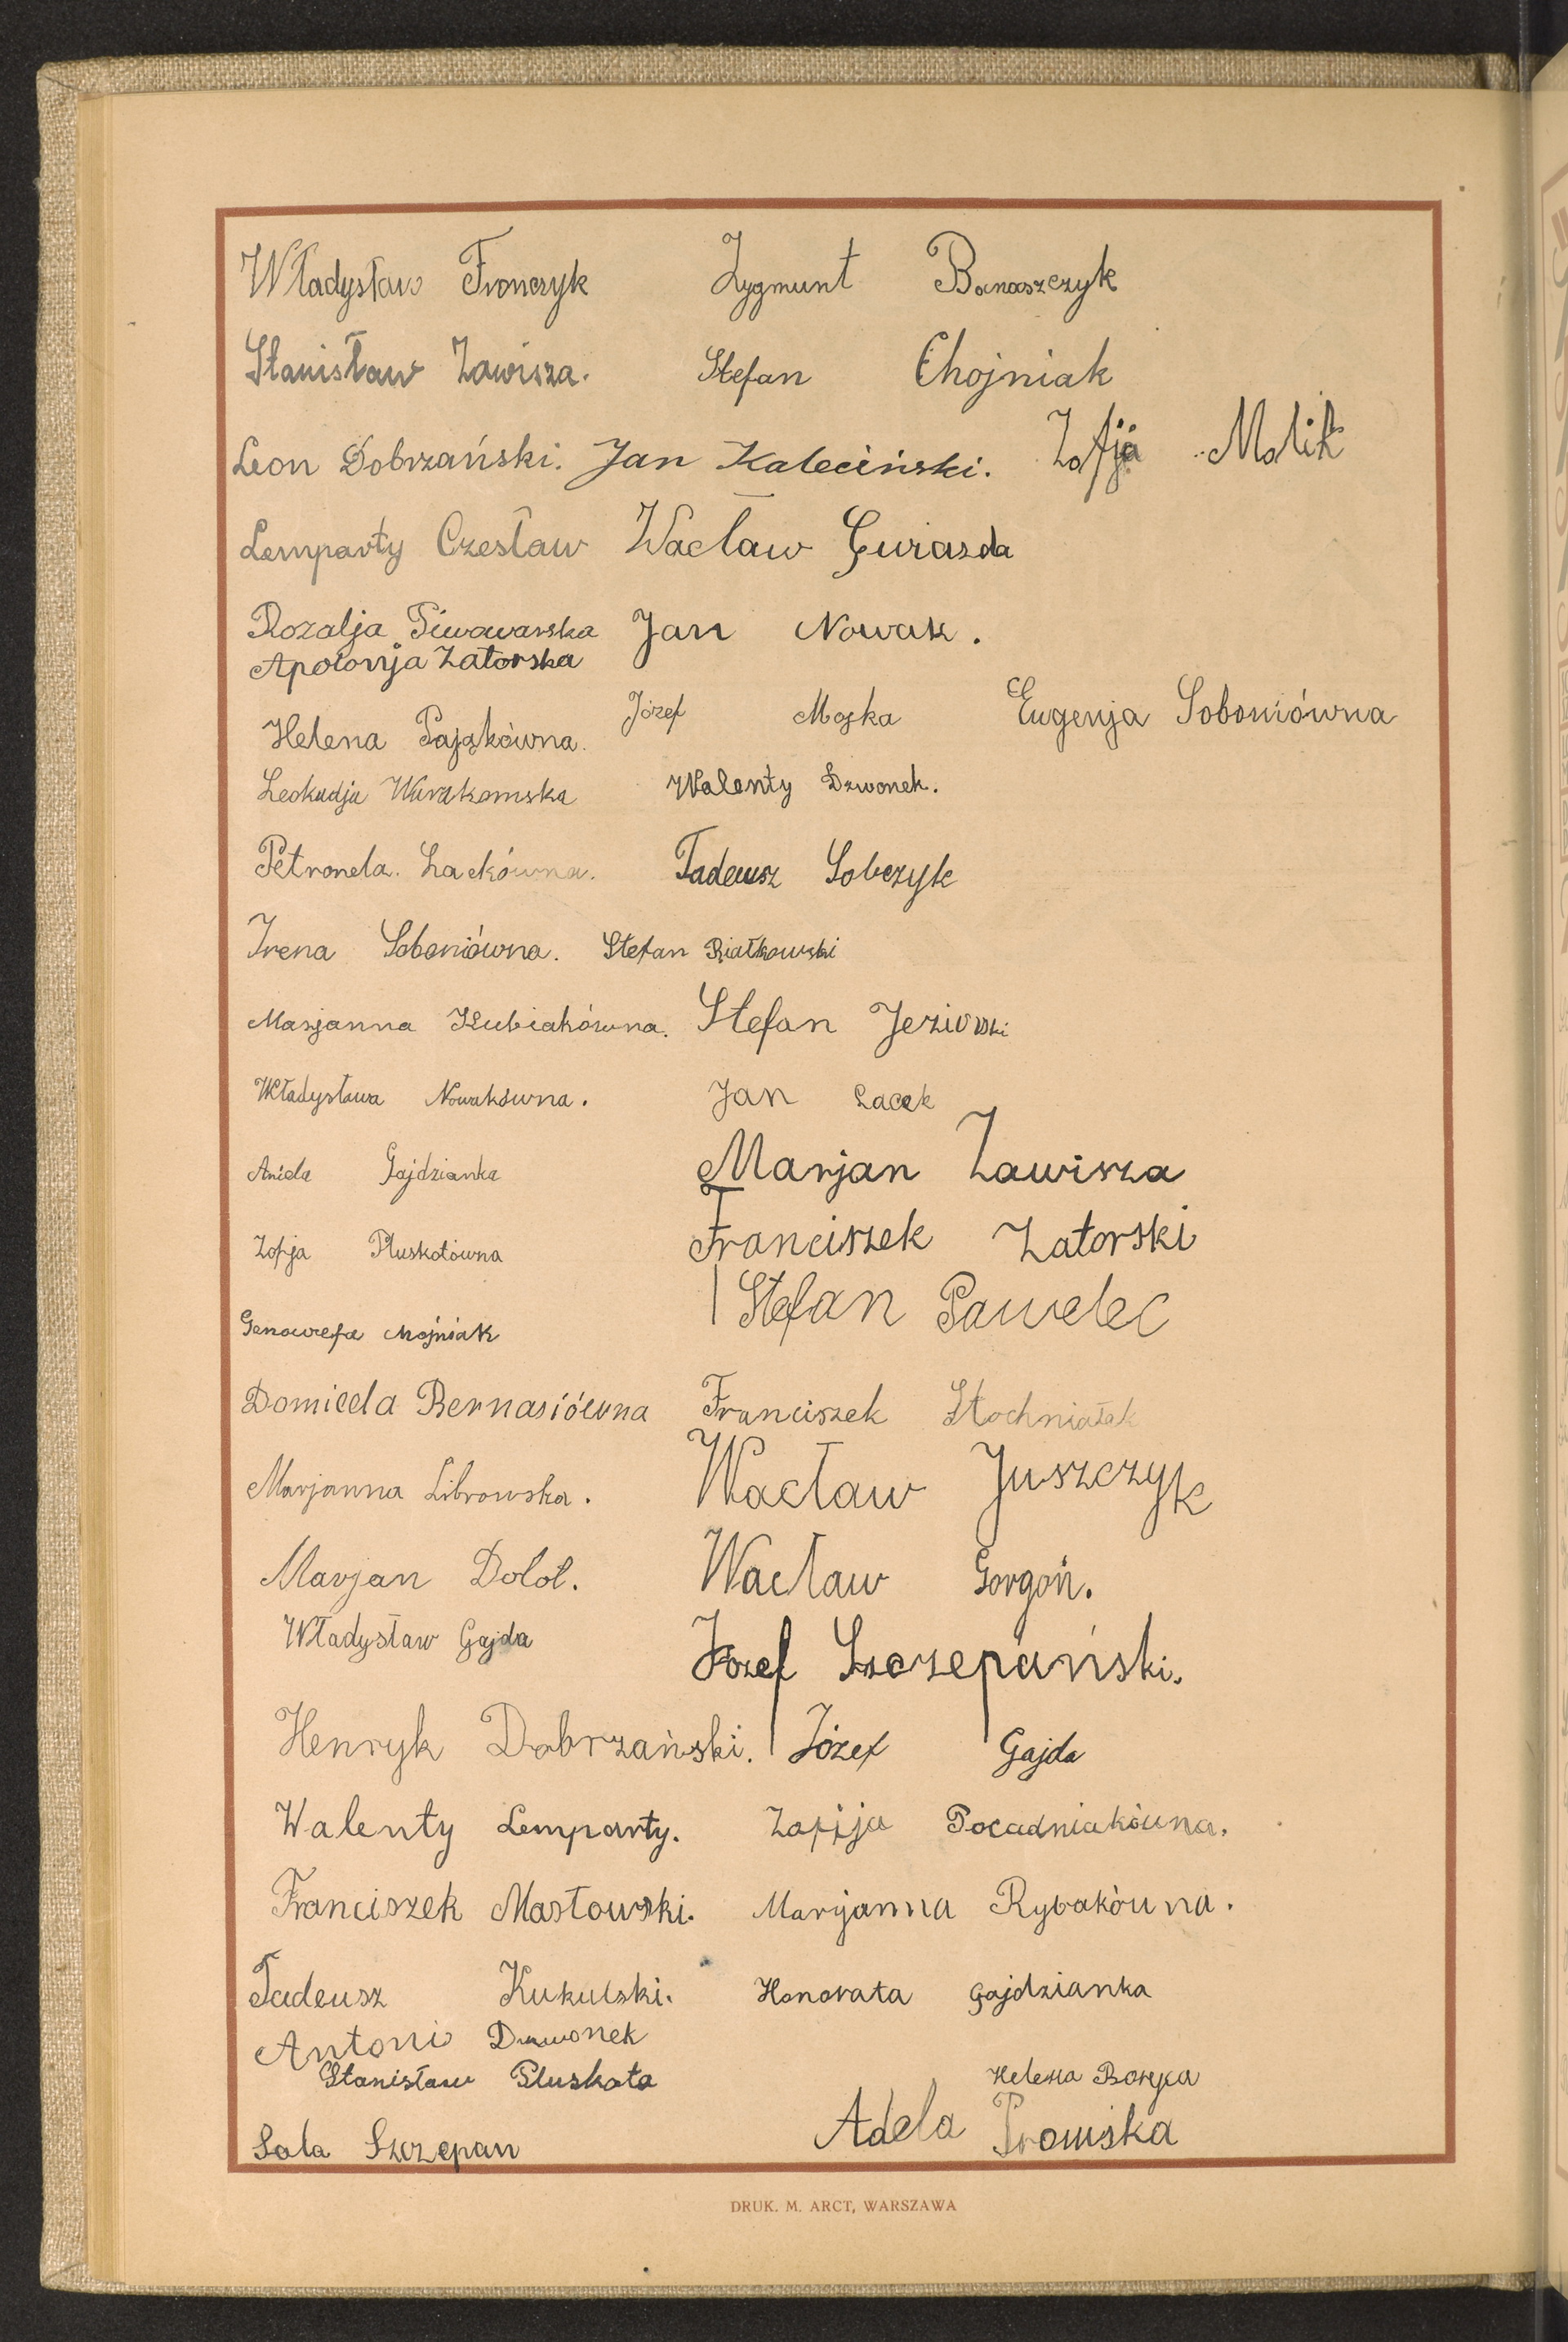 Władysław Fronczyk Zygmunt Banaszczyk
Stanisław Zawisza. Stefan Chojniak
Leon Dobrzański. Jan Kaleciński. Zofja Molik
Lemparty Czesław Wacław Gwiazda
Rozalja Piwowarska Jan Nowak.
Apolonja Zatorska
Helena Pająkówna. Józef Mojka Eugenja Soboniówna
Leokadja Warakomska Walenty Dzwonek.
Petronela. Lackówna. Tadeusz Sobczyk
Irena Soboniówna. Stefan Piatkowski
Marjanna Kubiakówna. Stefan Jeziorski
Władysława Nowakówna. Jan Lacek
Aniela Gajdzianka Marjan Zawisza
Zofja Pluskotówna Franciszek Zatorski
Genowefa Chojniak Stefan Pawelec
Domicela Bernasiówna Franciszek Stochniałek
Marjanna Librowska. Wacław Juszczyk
Marjan Dolot. Wacław Gorgoń.
Władysław Gajda Józef Szczepański.
Henryk Dobrzański. Józef Gajda
Walenty Lemparty. Zofija Pocadniakówna.
Franciszek Masłowski. Maryanna Rybakówna.
Tadeusz Kukulski. Honorata Gajdzianka
Antoni Dzwonek
Stanisław Pluskota Helena
Sala Szczepan Adela
DRUK. M. ARCT, WARSZAWA